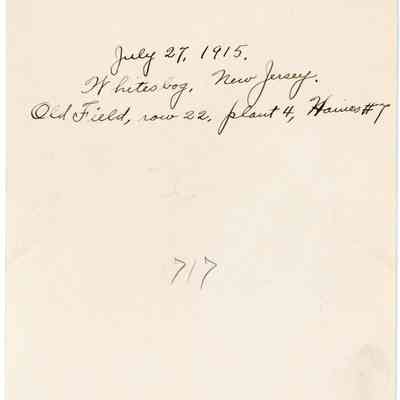 July 27, 1915.
Whitesbog, New Jersey.
Old Field, row 22, plant 4, Haines #7
717